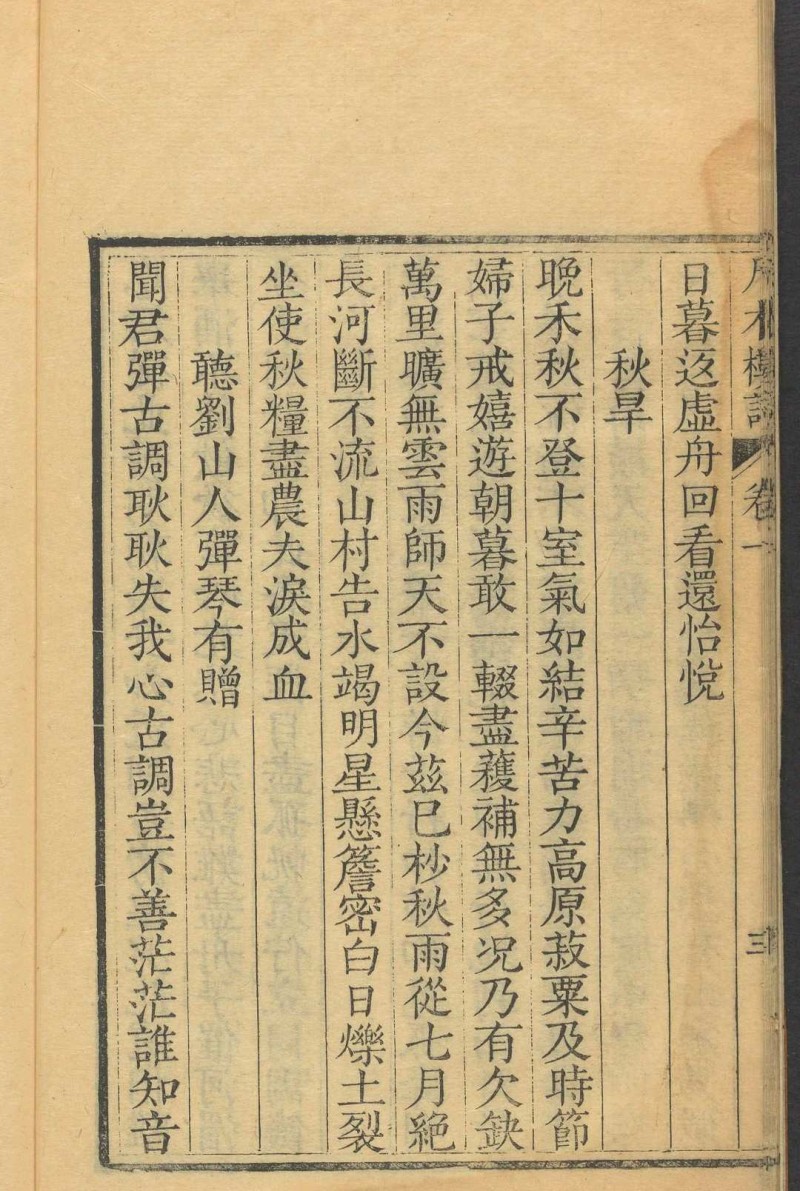 卷一
三
日暮返虛舟回看還怡悅
秋旱
晚禾秋不登十室氣如結辛苦力高原菽粟及時節
婦子戒嬉遊朝暮敢一輟盡蓻補無多况乃有欠缺
萬里曠無雲雨師天不設今茲已杪秋雨從七月絕
長河斷不流山村告水竭明星懸簷密白日爍土裂
坐使秋糧盡農夫淚成血
聽劉山人彈琴有贈
聞君彈古調耿耿失我心古調豈不善茫茫誰知音